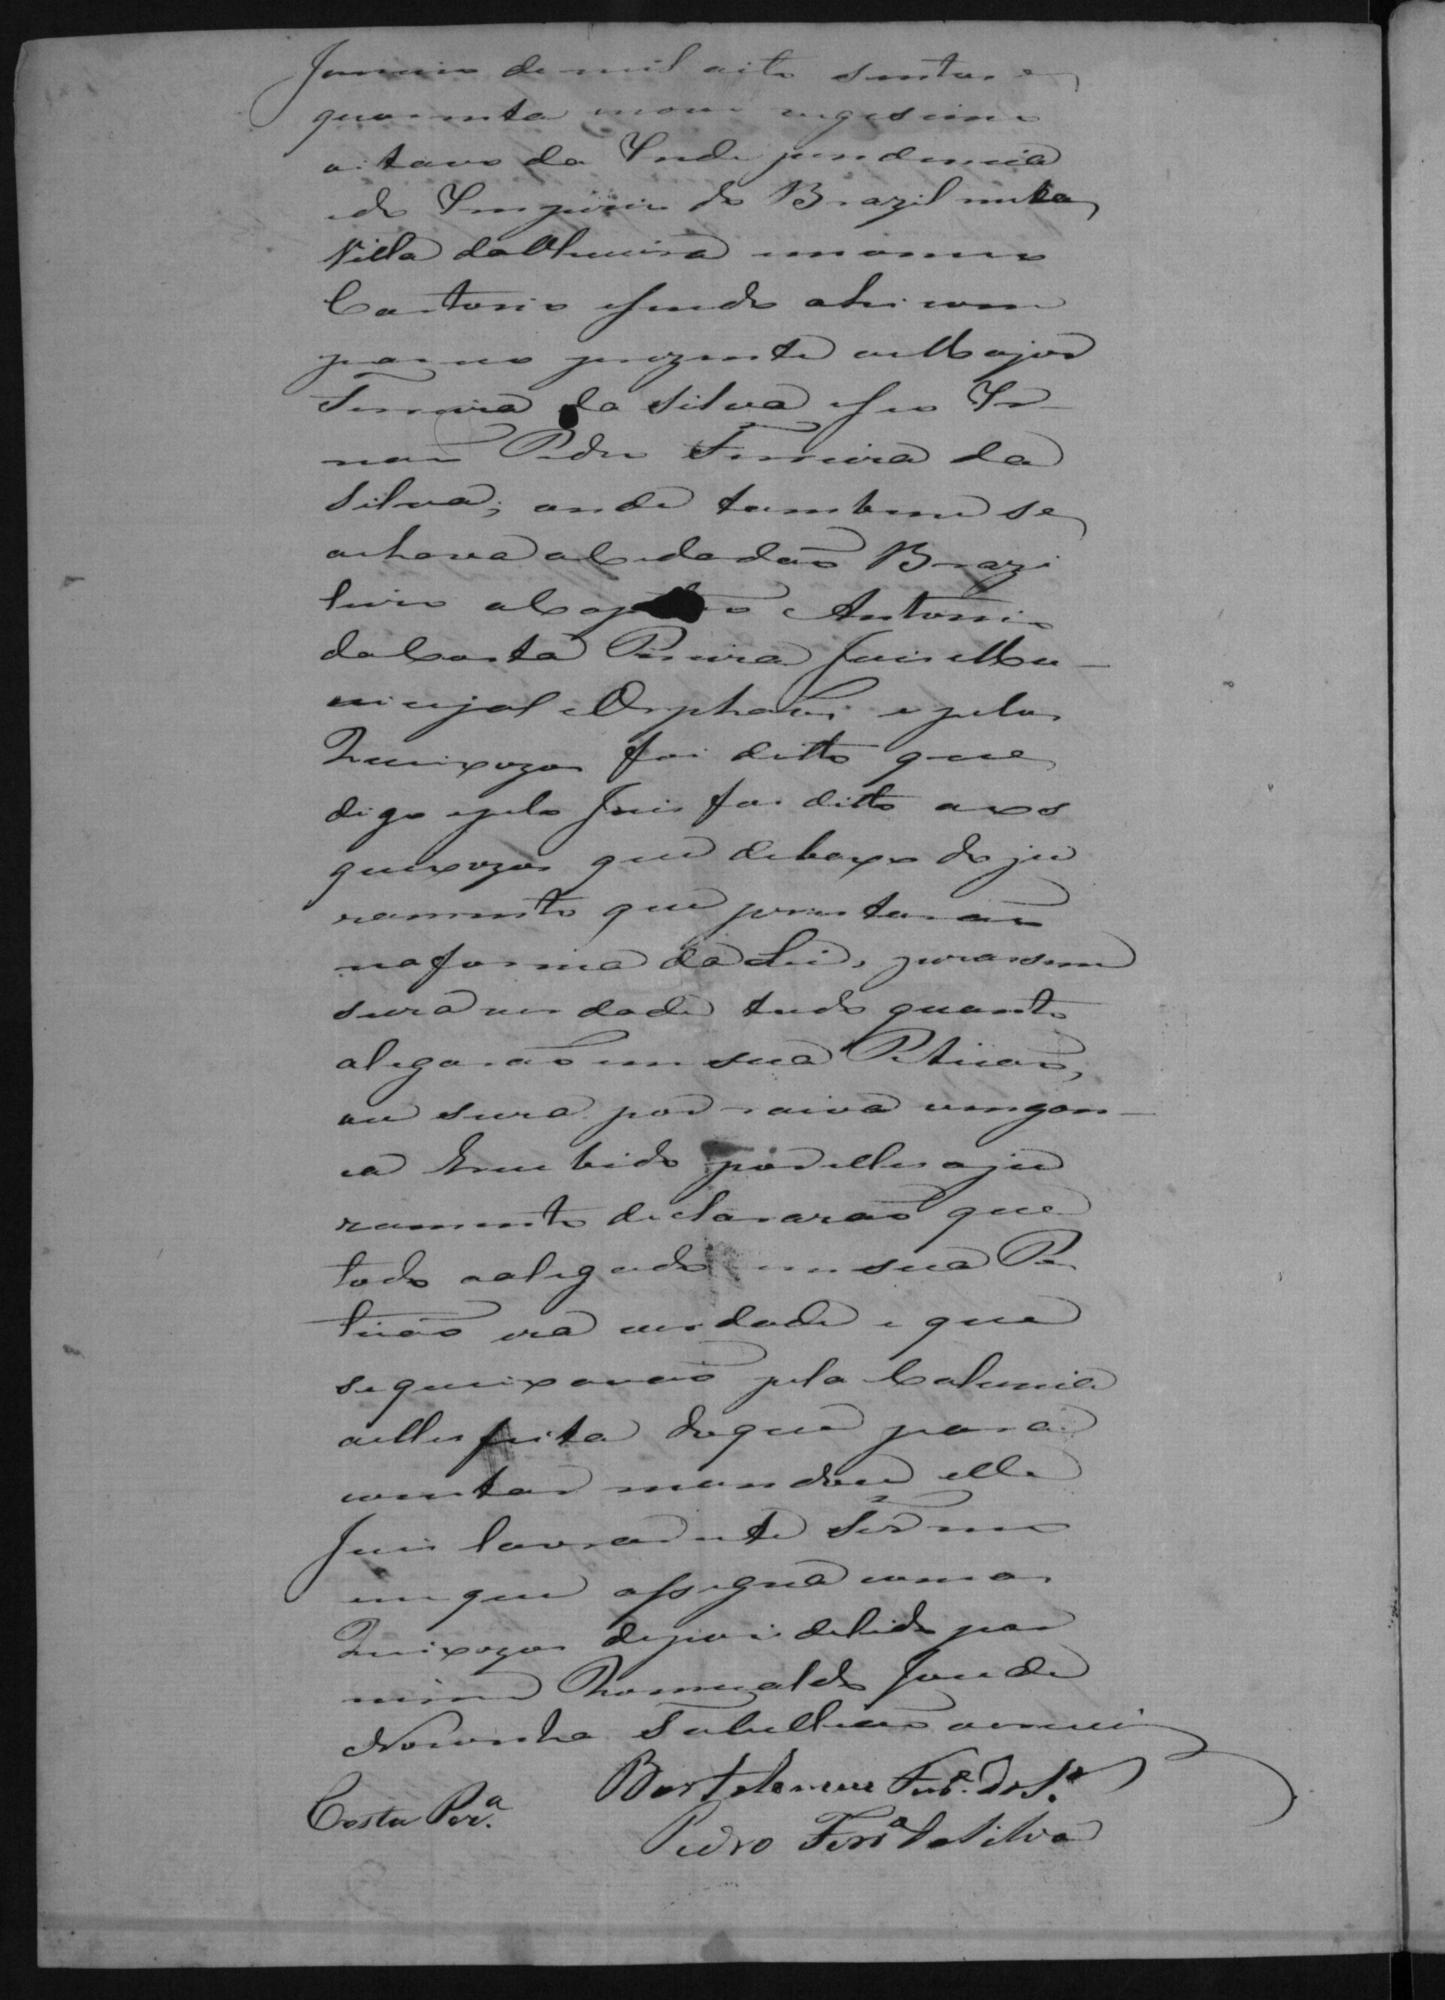 Janeiro de mil oito sentos e
quarenta nove vigesimo
oitavo da Inde pendencia
edo Imperio do Brazil nesta
Villa da Oliveira em meu
Cartorio esendo ahi com
pareceo prezente o Major
Ferreira da Silva eseo Ir-
maõ Pedro Ferreira da
Silva; onde tambem se
achava o Cidadaõ Brazi
leiro o Capitaõ Antonio
da Costa Pereira Juis Mu-
nicipal e Orphaõs e pelos
Queixozos foi ditto que
digo epelo Juis foi ditto aos
queixozos que debaixo do ju
ramento que prestaraõ
na forma da Lei, jurassem
sera verdade tudo quanto
alegaraõ em sua Peticaõ,
ou sera por raiva vingan-
ca E recebido por elles o ju
ramento declararaõ que
todo o alegado em sua Pe
ticaõ era verdade e que
se queixavaõ pela Calumnia
a elles feita do que para
constar mandou elle
Juis lavrar este Termo
em que assigna com os
Queixozos depois de lido por
mim Romualdo Jose de
Noronha Tabelliaõ o escrevi
Bartolomeu Ferr.ª da S.ª
Costa Per.ª
Pedro Ferr.ª da Silva